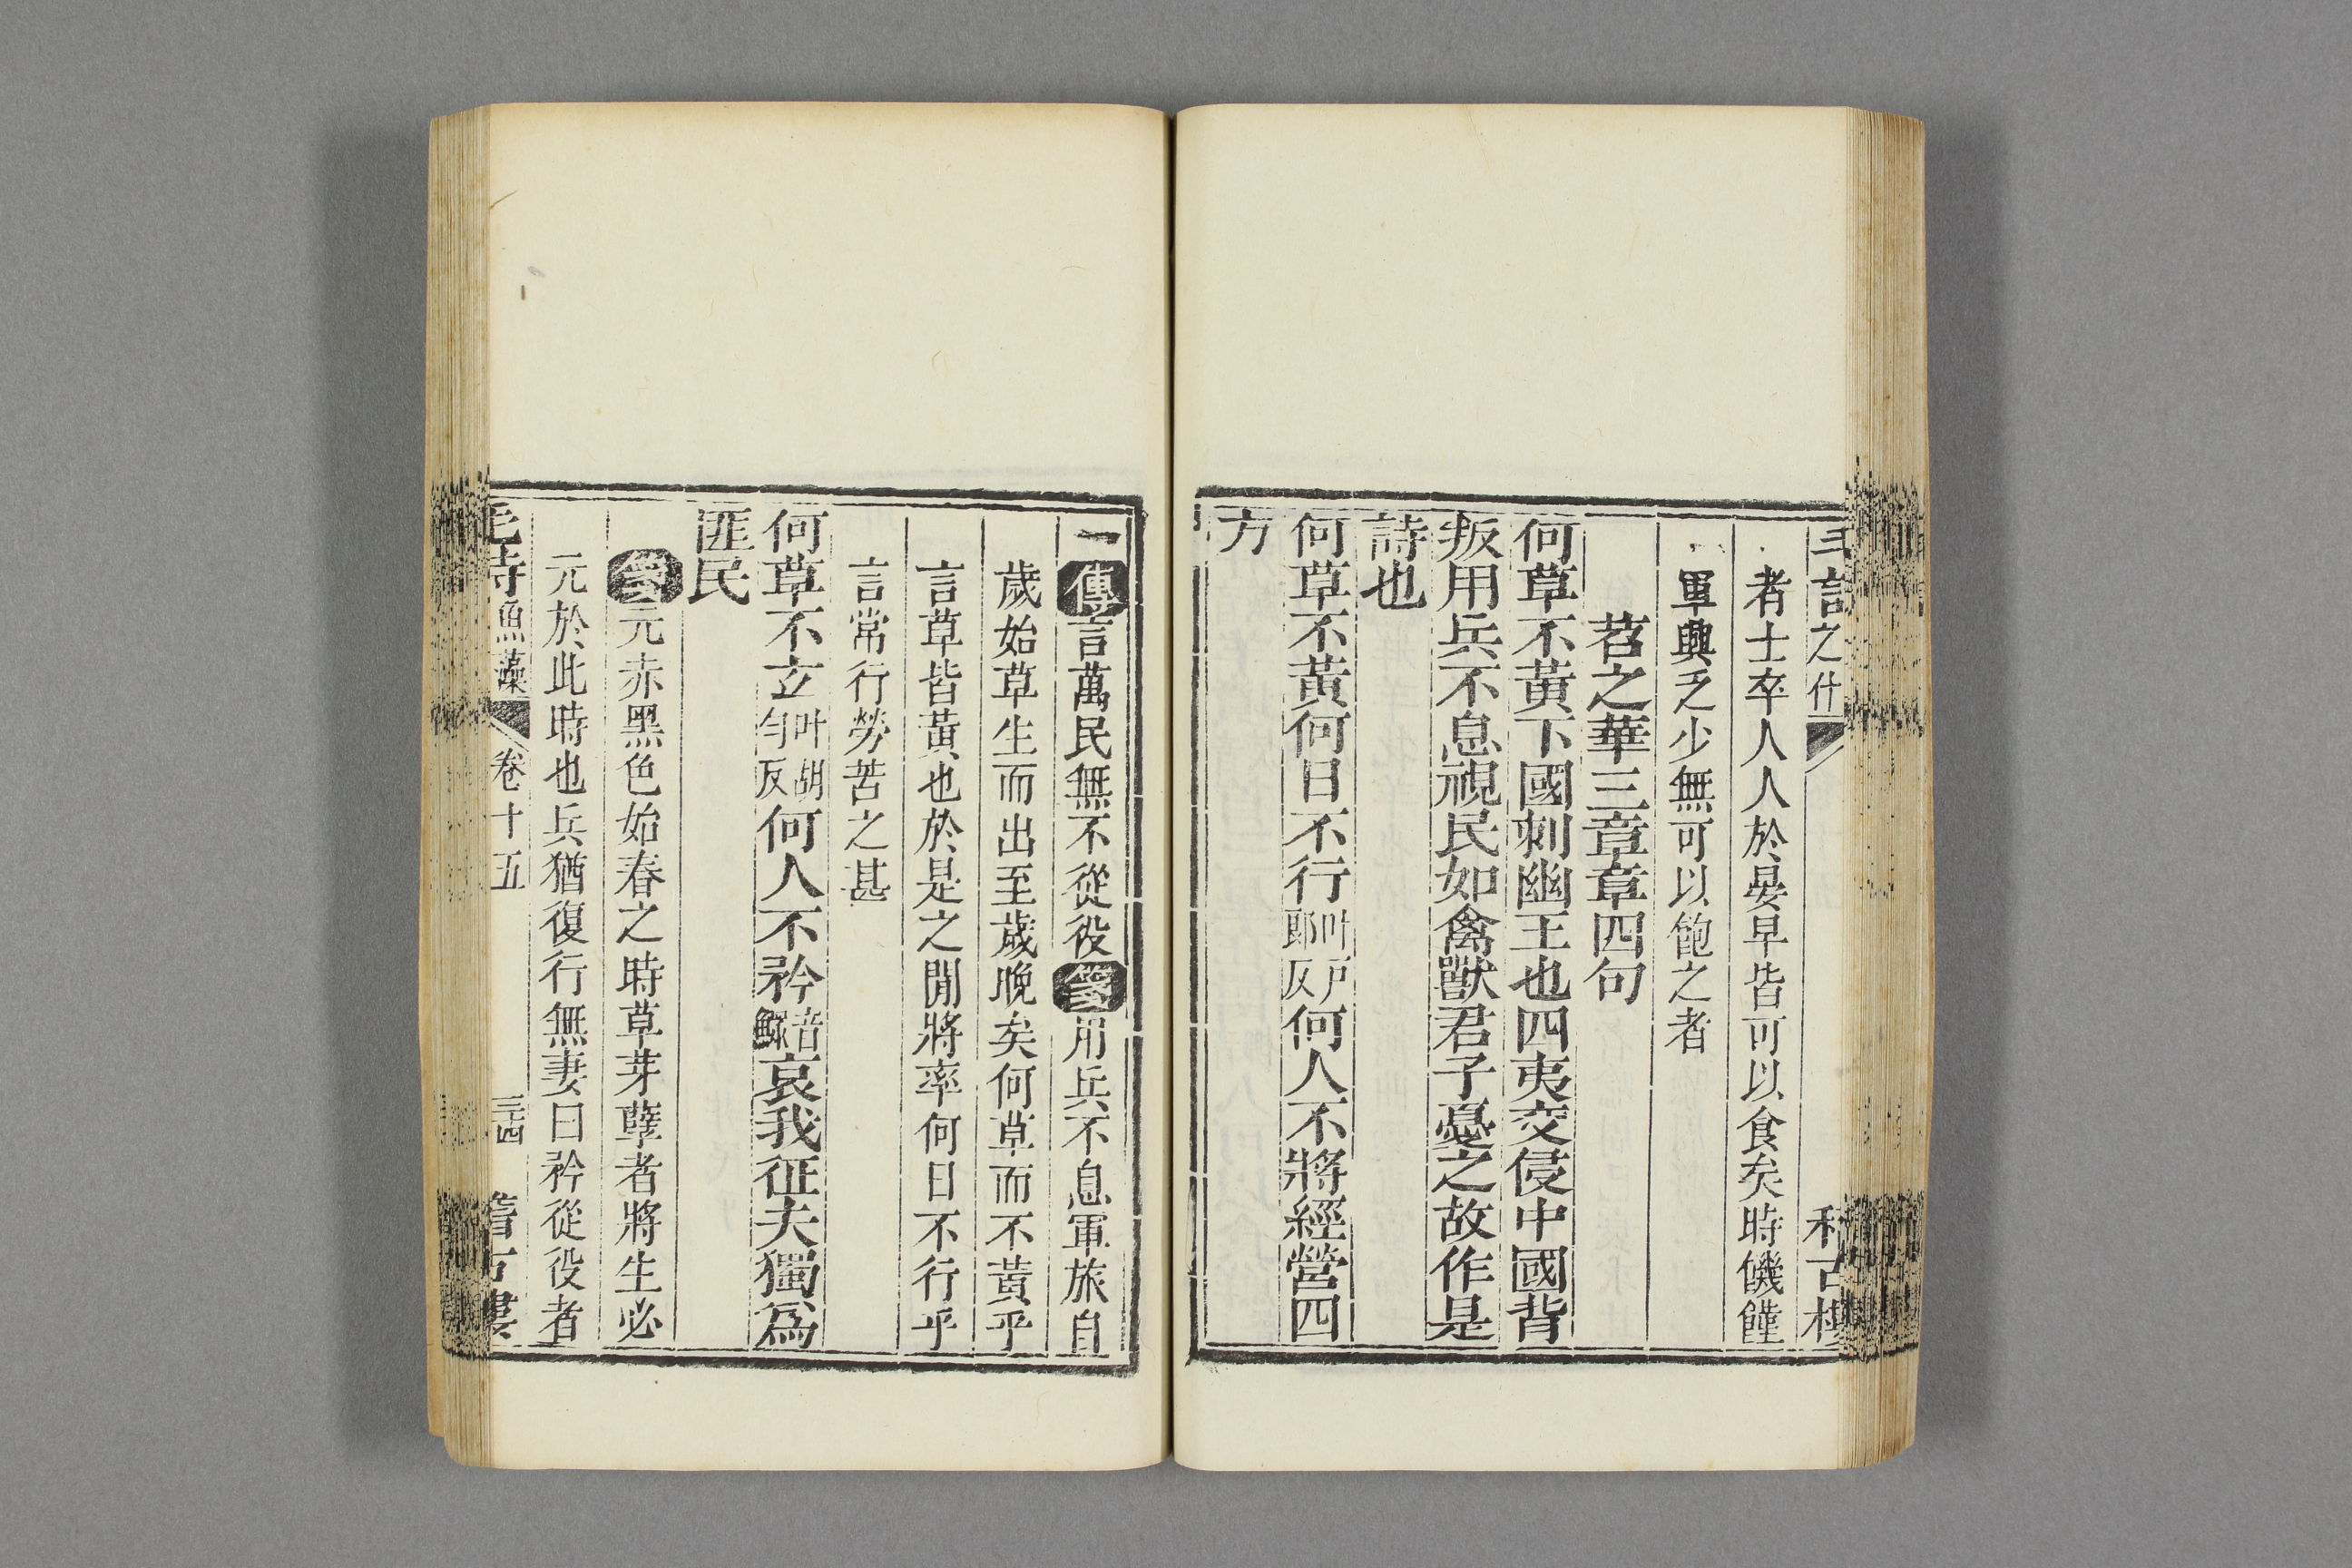 之什
者士卒人人於晏早皆可以食矣時饑饉
軍興乏少無可以飽之者
苕之華三章章四句
何草不黃下國刺幽王也四夷交侵中國背
叛用兵不息視民如禽獸君子憂之故作是
詩也
何草不黃何日不行叶戶郎反何人不將經營四
方
傳言萬民無不從役箋用兵不息軍旅自
歲始草生而出至歲晚矣何草而不黃乎
言草皆黃也於是之閒將率何日不行乎
言常行勞苦之甚
何草不玄叶胡勻反何人不矜音鰥哀我征夫獨爲
匪民
箋元赤黑色始春之時草芽孽者將生必
元於此時也兵猶復行無妻曰矜從役者
毛詩魚藻 卷十五 三四